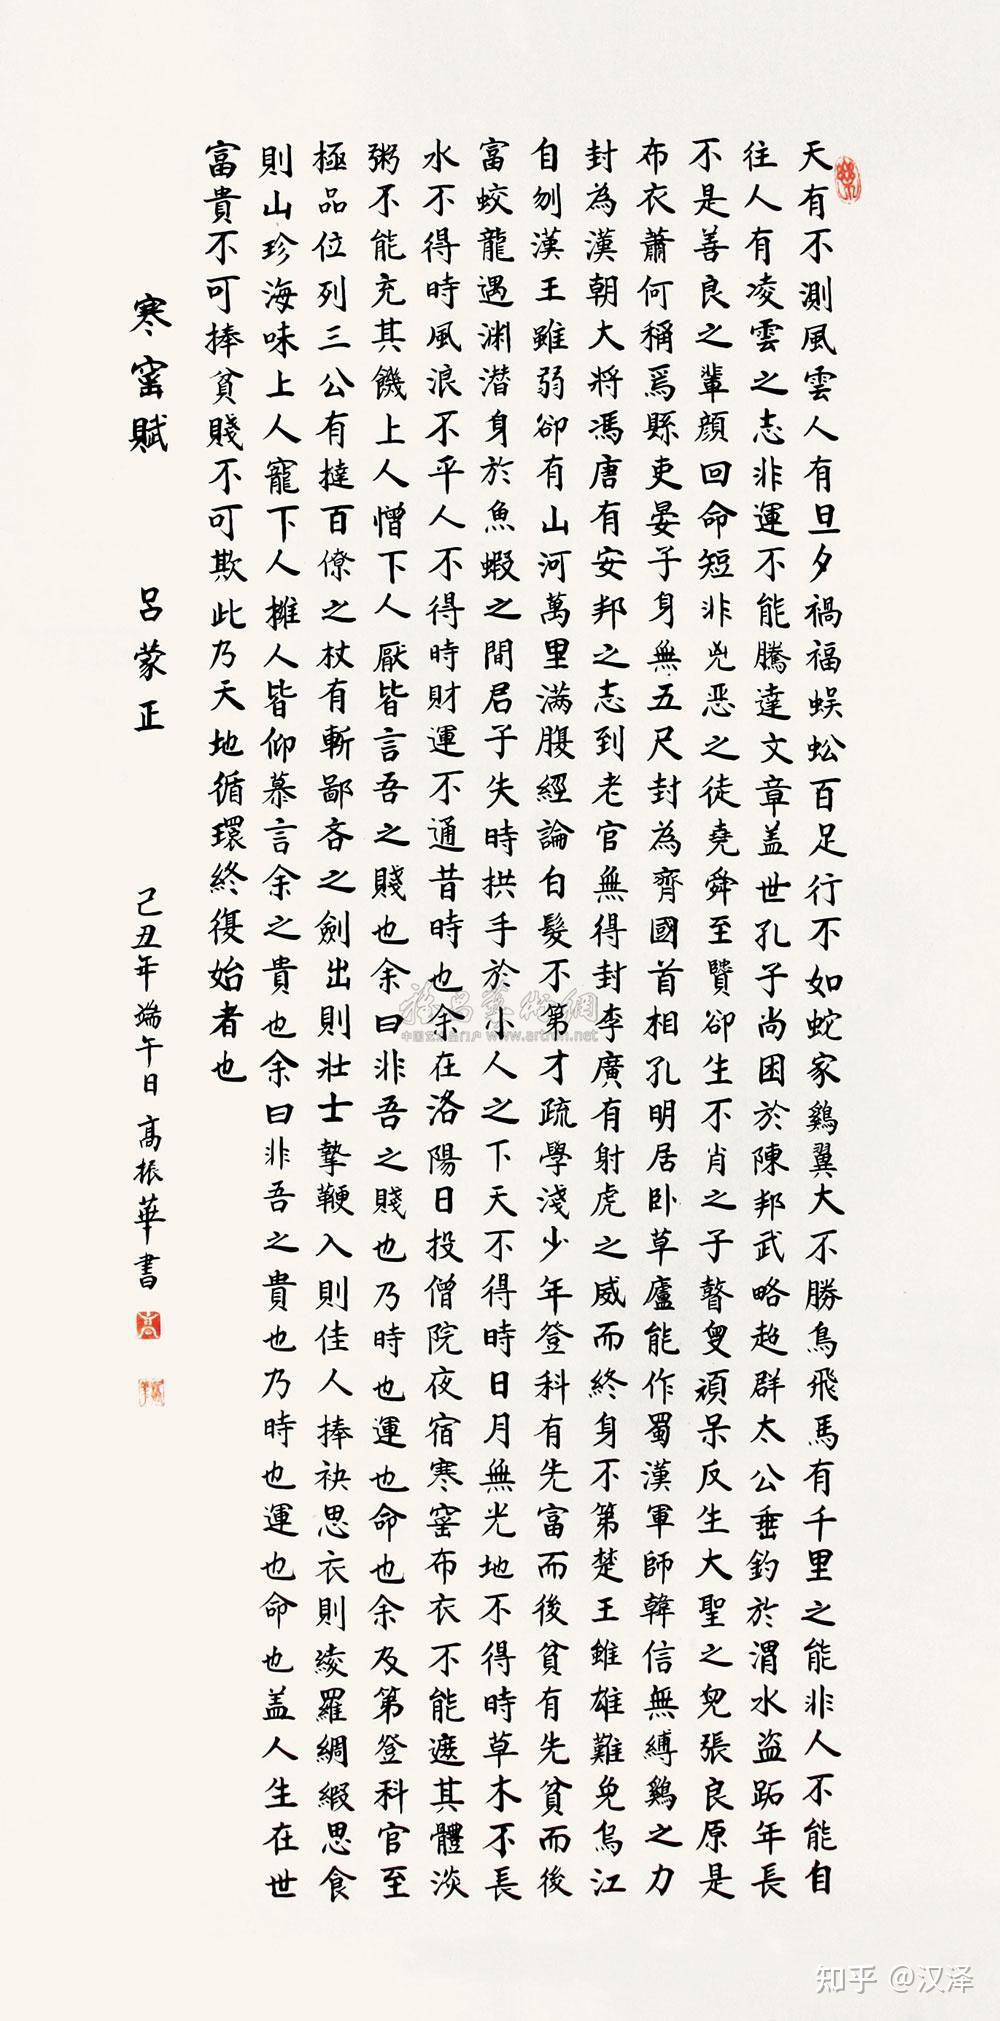 天有不測風雲人有旦夕禍福蜈蚣百足行不如蛇家鷄翼大不勝鳥飛馬有千里之能非人不能自
往人有凌雲之志非運不能騰達文章盖世孔子尚困於陳邦武略超群太公垂釣於渭水盗跖年長
不是善良之輩顔回命短非兇恶之徒堯舜至賢卻生不肖之子瞽叟頑呆反生大聖之兒張良原是
布衣蕭何稱爲縣吏晏子身無五尺封為齊國首相孔明居卧草廬能作蜀漢軍師韓信無縛鷄之力
封為漢朝大将馮唐有安邦之志到老官無得封李廣有射虎之威而終身不第楚王雖雄難免烏江
自刎漢王雖弱卻有山河萬里满腹經論白髮不第才疏學淺少年登科有先富而後貧有先貧而後
富蛟龍遇渊潜身於魚蝦之間君子失時拱手於小人之下天不得時日月無光地不得時草木不長
水不得時風浪不平人不得時財運不通昔時也余在洛陽日投僧院夜宿寒窑布衣不能遮其體淡
粥不能充其饑上人憎下人厭皆言吾之賤也余曰非吾之賤也乃時也運也命也余及第登科官至
極品位列三公有撻百僚之杖有斬鄙吝之劍出則壯士摯鞭入則佳人捧袂思衣則綾羅綢緞思食
則山珍海味上人寵下人擁人皆仰慕言余之貴也余曰非吾之貴也乃時也運也命也盖人生在世
富貴不可捧貧賤不可欺此乃天地循環終復始者也
寒窑賦 呂蒙正 己丑年端午日高振華書
雅昌藝術網
中国艺术品门户 www.artron.net
知乎 @汉泽